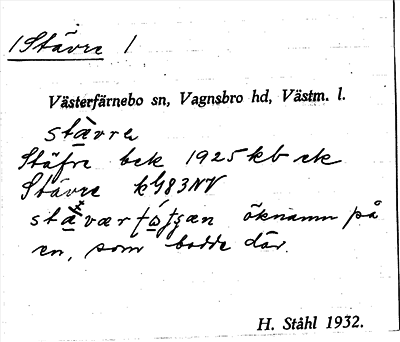 1 Stävre 1
Västerfärnebo sn, Vagnsbro hd, Västm. l.
stävra
Stäfre bek 1925 kb ek
Stävre kG83NV
öknamn på
en, som bodde där.
H. Ståhl 1932.